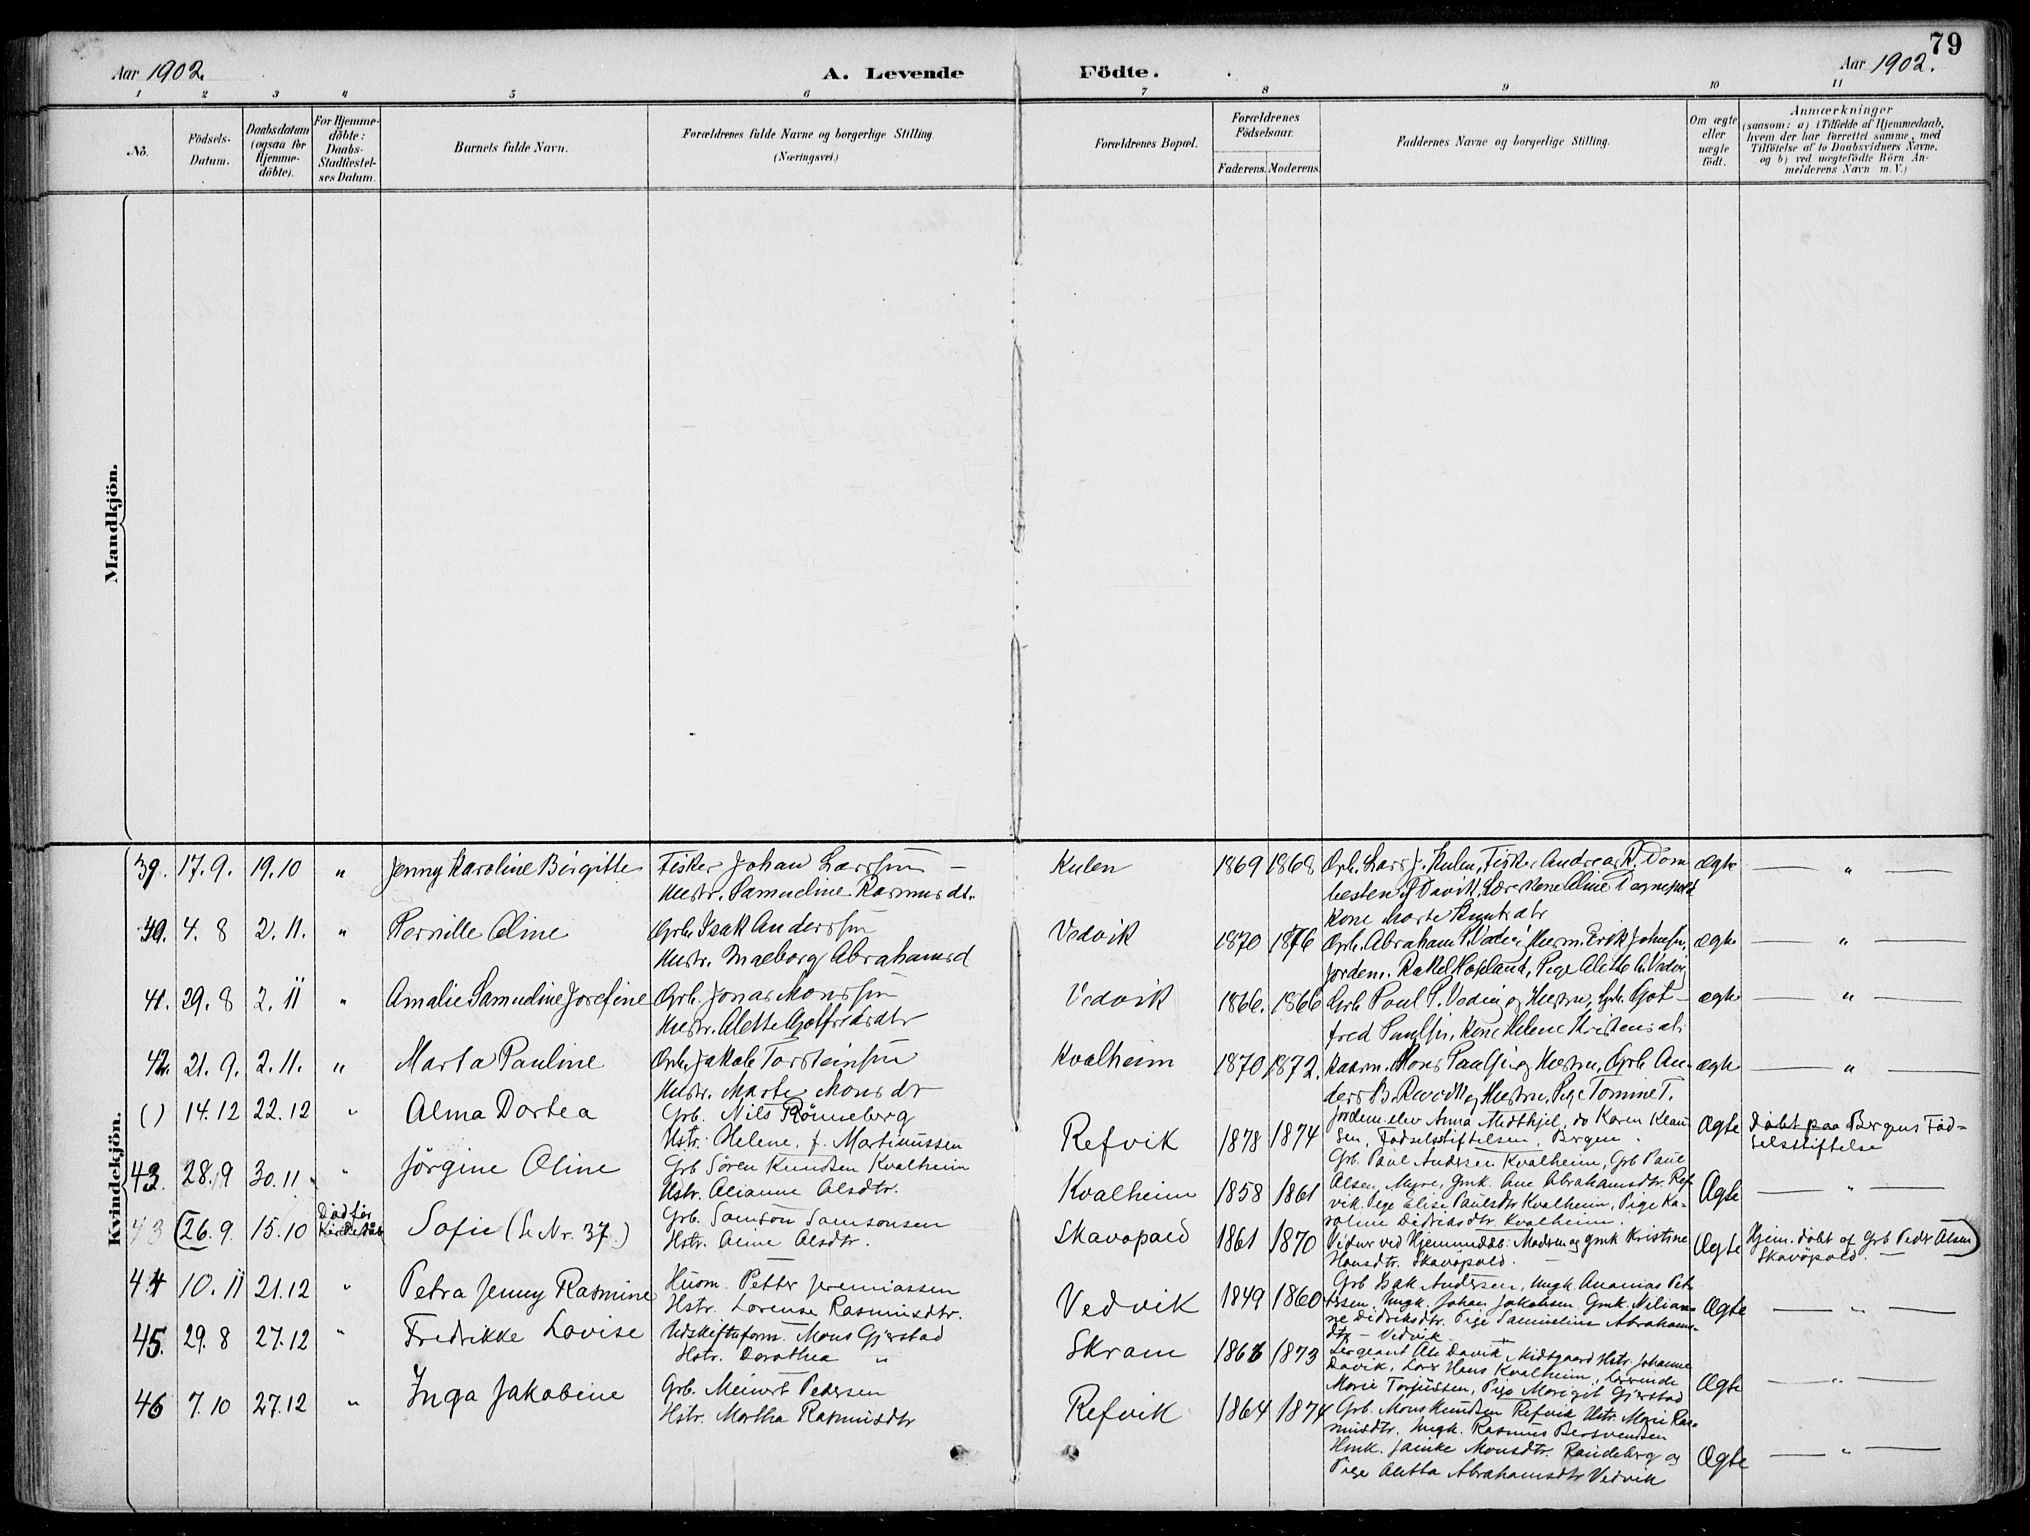 79
Aar 1902.
A. Levende Födte.
Aar 1902.
1 2 3 4 5 6 7 8 9 10 11
No.
Födsels-Datum.
Daabsdatum (ogsaa for Hjemme-döbte).
For Hjemme-döbte: Daabs-Stadfæstel-ses Datum.
Barnets fulde Navn.
Forældrenes fulde Navne og borgerlige Stilling. (Næringsvei.)
Forældrenes Bopæl.
Forældrenes Födselsaar.
Faderens. Moderens.
Faddernes Navne og borgerlige Stilling.
Om ægte eller uægte födt.
Anmærkninger
(saasom: a) i Tilfælde af Hjemmedaab,
hvem der har forrettet samme, med
Tilföielse af to Daabsvidners Navne,
og b) ved uægtefödte Börn An-
melderens Navn m. V.)
Mandkjön.
Kvindekjön.
39. 17.9. 19.10 " Jenny Karoline Birgitte Fisker Johan Larssøn – Kulen 1869 1868 Grb. Lars J. Kulen, Fisker Andreas R. Dom- ægte — " —
Hustr. Samueline Rasmusdt.
Kone Marte Knutsdtr
40. 4. 8 2. 11. " Pernille Oline Grb. Isak Anderssøn Vedvik 1870 1876 Grb. Abraham ægte — " —
Hustr. Ingeborg Abrahamsd
41. 29. 8 2. 11 " Amalie Samueline Josefine Grb. Jonas Monssøn Vedvik 1866. 1866 Grb Paul P. Vedvig og Hustru, Grb. Got- ægte — " —
Hustr. Alette Gotfredsdtr fred Paulssen, Kone Helene Kristensdtr
42. 21. 9. 2. 11. " Marta Pauline Grb. Jakob Torsteinsøn Kvalheim 1870 1872. Mons Paulsen og Hustru, Grb. An- ægte — " —
Hustr. Marte Monsdtr ders og Hustru, Pige Tomine T.
( ) 14.12 22.12 " Alma Dortea Grb. Nils Rönneberg Refvik 1878 1874 Jordem.elev Anna Midthjel, do Karen Klau- Ægte Döbt paa Bergens Fød-
Hstr. Helene, f. Martinussen sen, Födselsstiftelsen, Bergen. selsstiftelse
43. 28.9 30.11 " Jörgine Oline Grb Sören Knudsen Kvalheim Kvalheim 1858 1861 Grb. Paul Andersen Kvalheim, Grb Paul Ægte — " —
Hstr. Alianne Olsdtr. Olsen Myre, Gmk. Ane Abrahamsdtr. Ref-
vik, Pige Elise Paulsdtr Kvalheim, Pige Ka-
roline Didriksdtr. Kvalheim.
43 (26.9. 15.10 Död för Kirkedåb Sofie (Se Nr. 37.) Grb. Samson Samsonsen Skavøpold 1861 1870 Vidner ved Hjemmedåb: Moderen og Gmk Kristine Ægte Hjem. döbt af Grb Peder Olsen)
Hstr. Oline Olsdtr. Hansdtr. Skavøpold. – Skavöpold. –
44 10. 11 21.12 " Petra Jenny Rasmine Husm. Petter Jeremiassen Vedvik 1849 1860 Grb Isak Andersen, Ungk. Ananias Pet- Ægte — " —
Hstr. Lorense Rasmusdtr. tersen, Ungk. Johan Jakobsen, Gmk.
ne Didriksdtr. Pige Samueline Abrahams-
dtr – Vedvik
45. 29. 8 27.12 " Fredrikke Lovise Udskiftsform. Mons Gjerstad Skram 1873 Sergeant Ole Davik, Midtgaard Hstr. Johanne Ægte — " —
Hstr. Dorothea " Davik, Hans Kvalheim, Lærerinde
Marie Torjussen, Pige Gjerstad
46 7. 10 27.12 " Inga Jakobine Grb. Meinert Pedersen Refvik 1864 1874 Grb. Mons Knudsen Refvik Hstr. Marie Ras- Ægte — " —
Hstr. Martha Rasmusdtr musdtr. Ungk. Rasmus Bersvendsen
Monsdtr. Randeberg og
Pige Aletta Abrahamsdtr Vedvik